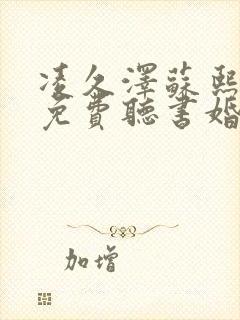 凌久澤蘇熙
免費聽書婚
加增